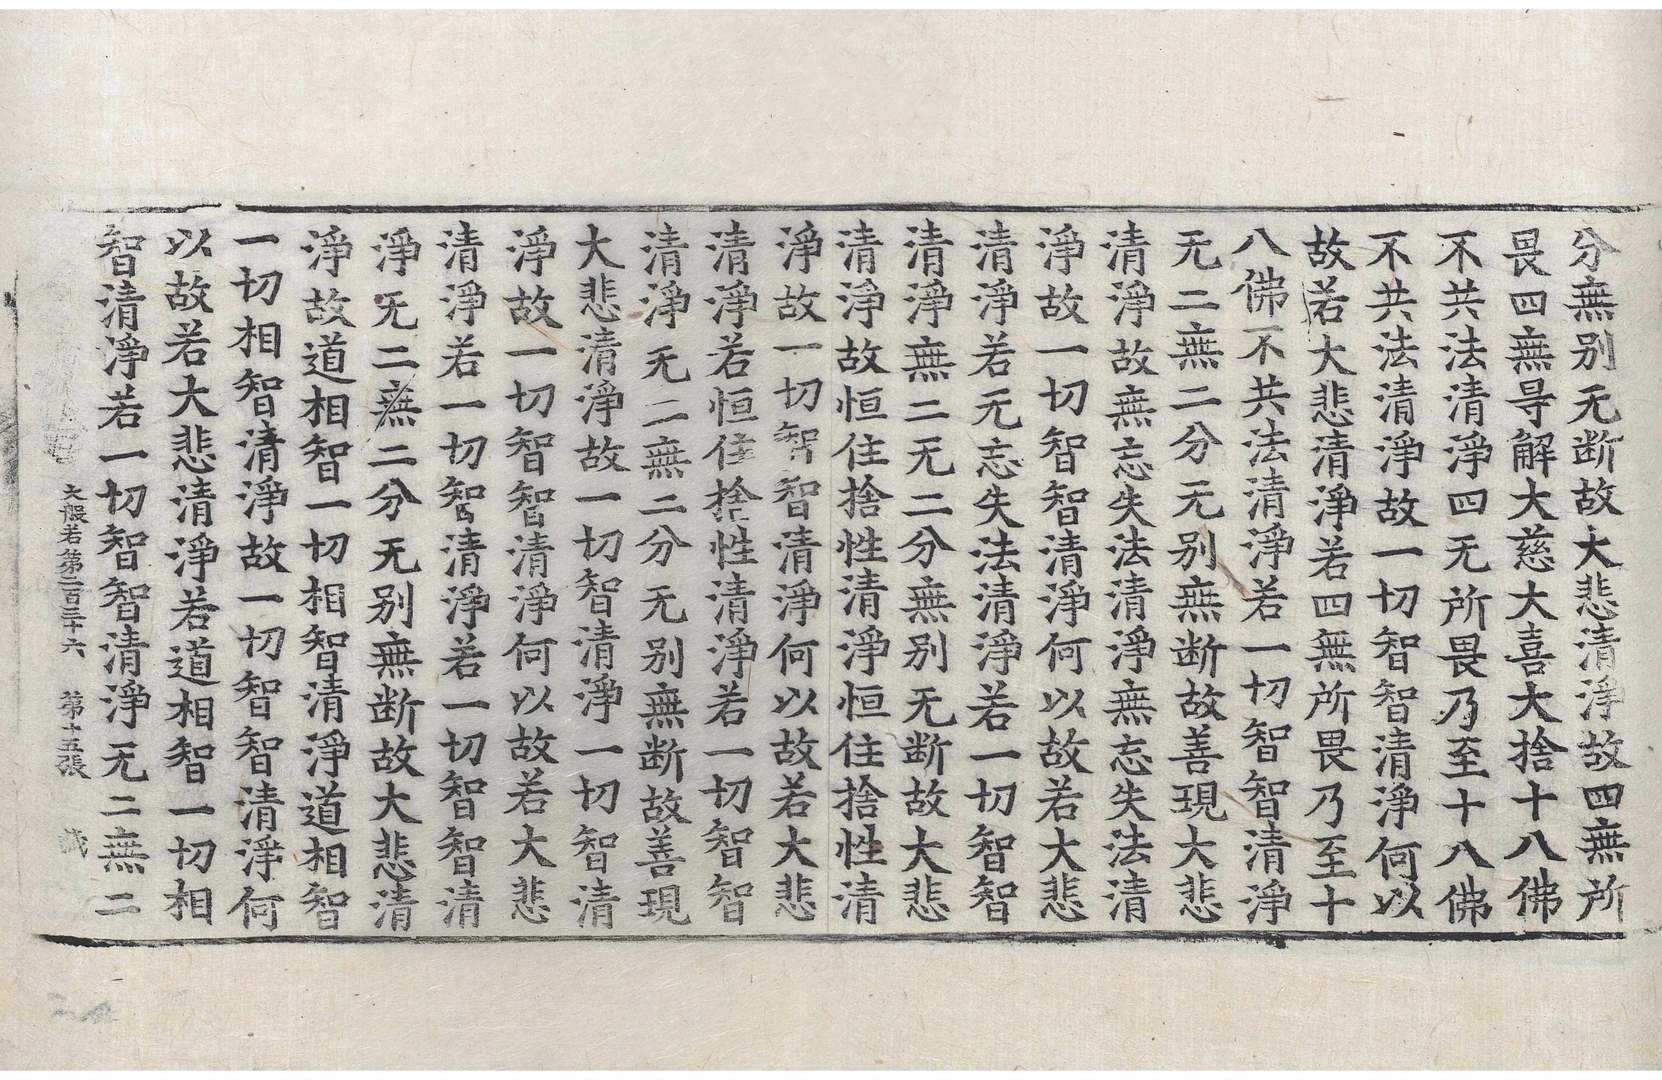 分無别无断故大悲清淨故四無所
畏四無㝵解大慈大喜大捨十八佛
不共法清淨四无所畏乃至十八佛
不共法清淨故一切智智清淨何以
故若大悲清淨若四無所畏乃至十
八佛不共法清淨若一切智智清淨
无二無二分无别無断故善現大悲
清淨故無忘失法清淨無忘失法清
淨故一切智智清淨何以故若大悲
清淨若无忘失法清淨若一切智智
清淨無二无二分無别无断故大悲
清淨故恒住捨性清淨恒住捨性清
淨故一切智智清淨何以故若大悲
清淨若恒住捨性清淨若一切智智
清淨无二無二分无别無断故善現
大悲清淨故一切智清淨一切智清
淨故一切智智清淨何以故若大悲
清淨若一切智清淨若一切智智清
淨无二無二分无别無断故大悲清
淨故道相智一切相智清淨道相智
一切相智清淨故一切智智清淨何
以故若大悲清淨若道相智一切相
智清淨若一切智智清淨无二無二
大般若第二百三十六 第十五張